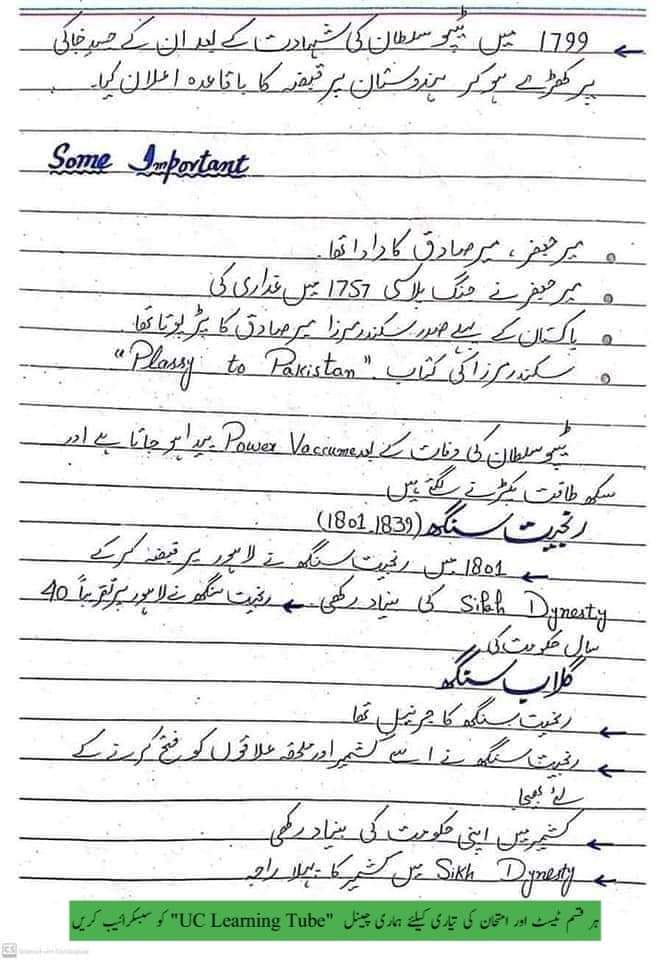 ← 1799 میں ٹیپو سلطان کی شہادت کے بعد ان کے جسدِ خاکی
پر کھڑے ہو کر ہندوستان پر قبضہ کا باقاعدہ اعلان کیا۔
Some Important
• میر جعفر، میر صادق کا دادا تھا۔
• میر جعفر نے جنگ پلاسی 1757 میں غداری کی
• پاکستان کے پہلے صدر سکندر مرزا میر صادق کا پڑپوتا تھا۔
• سکندر مرزا کی کتاب "Plassy to Pakistan"
ٹیپو سلطان کی وفات کے بعد Power Vaccume پیدا ہو جاتا ہے اور
سکھ طاقت پکڑنے لگتے ہیں
رنجیت سنگھ (1801-1839)
← 1801 میں رنجیت سنگھ نے لاہور پر قبضہ کر کے
Sikh Dynesty کی بنیاد رکھی۔ ← رنجیت سنگھ نے لاہور پر تقریباً 40
سال حکومت کی
گلاب سنگھ
← رنجیت سنگھ کا جرنیل تھا
← رنجیت سنگھ نے اسے کشمیر اور ملحقہ علاقوں کو فتح کرنے کے
لئے بھیجا
← کشمیر میں اپنی حکومت کی بنیاد رکھی
← Sikh Dynesty میں کشمیر کا پہلا راجہ
ہر قسم ٹیسٹ اور امتحان کی تیاری کیلئے ہماری چینل "UC Learning Tube" کو سبسکرائیب کریں
CS Scanned with CamScanner